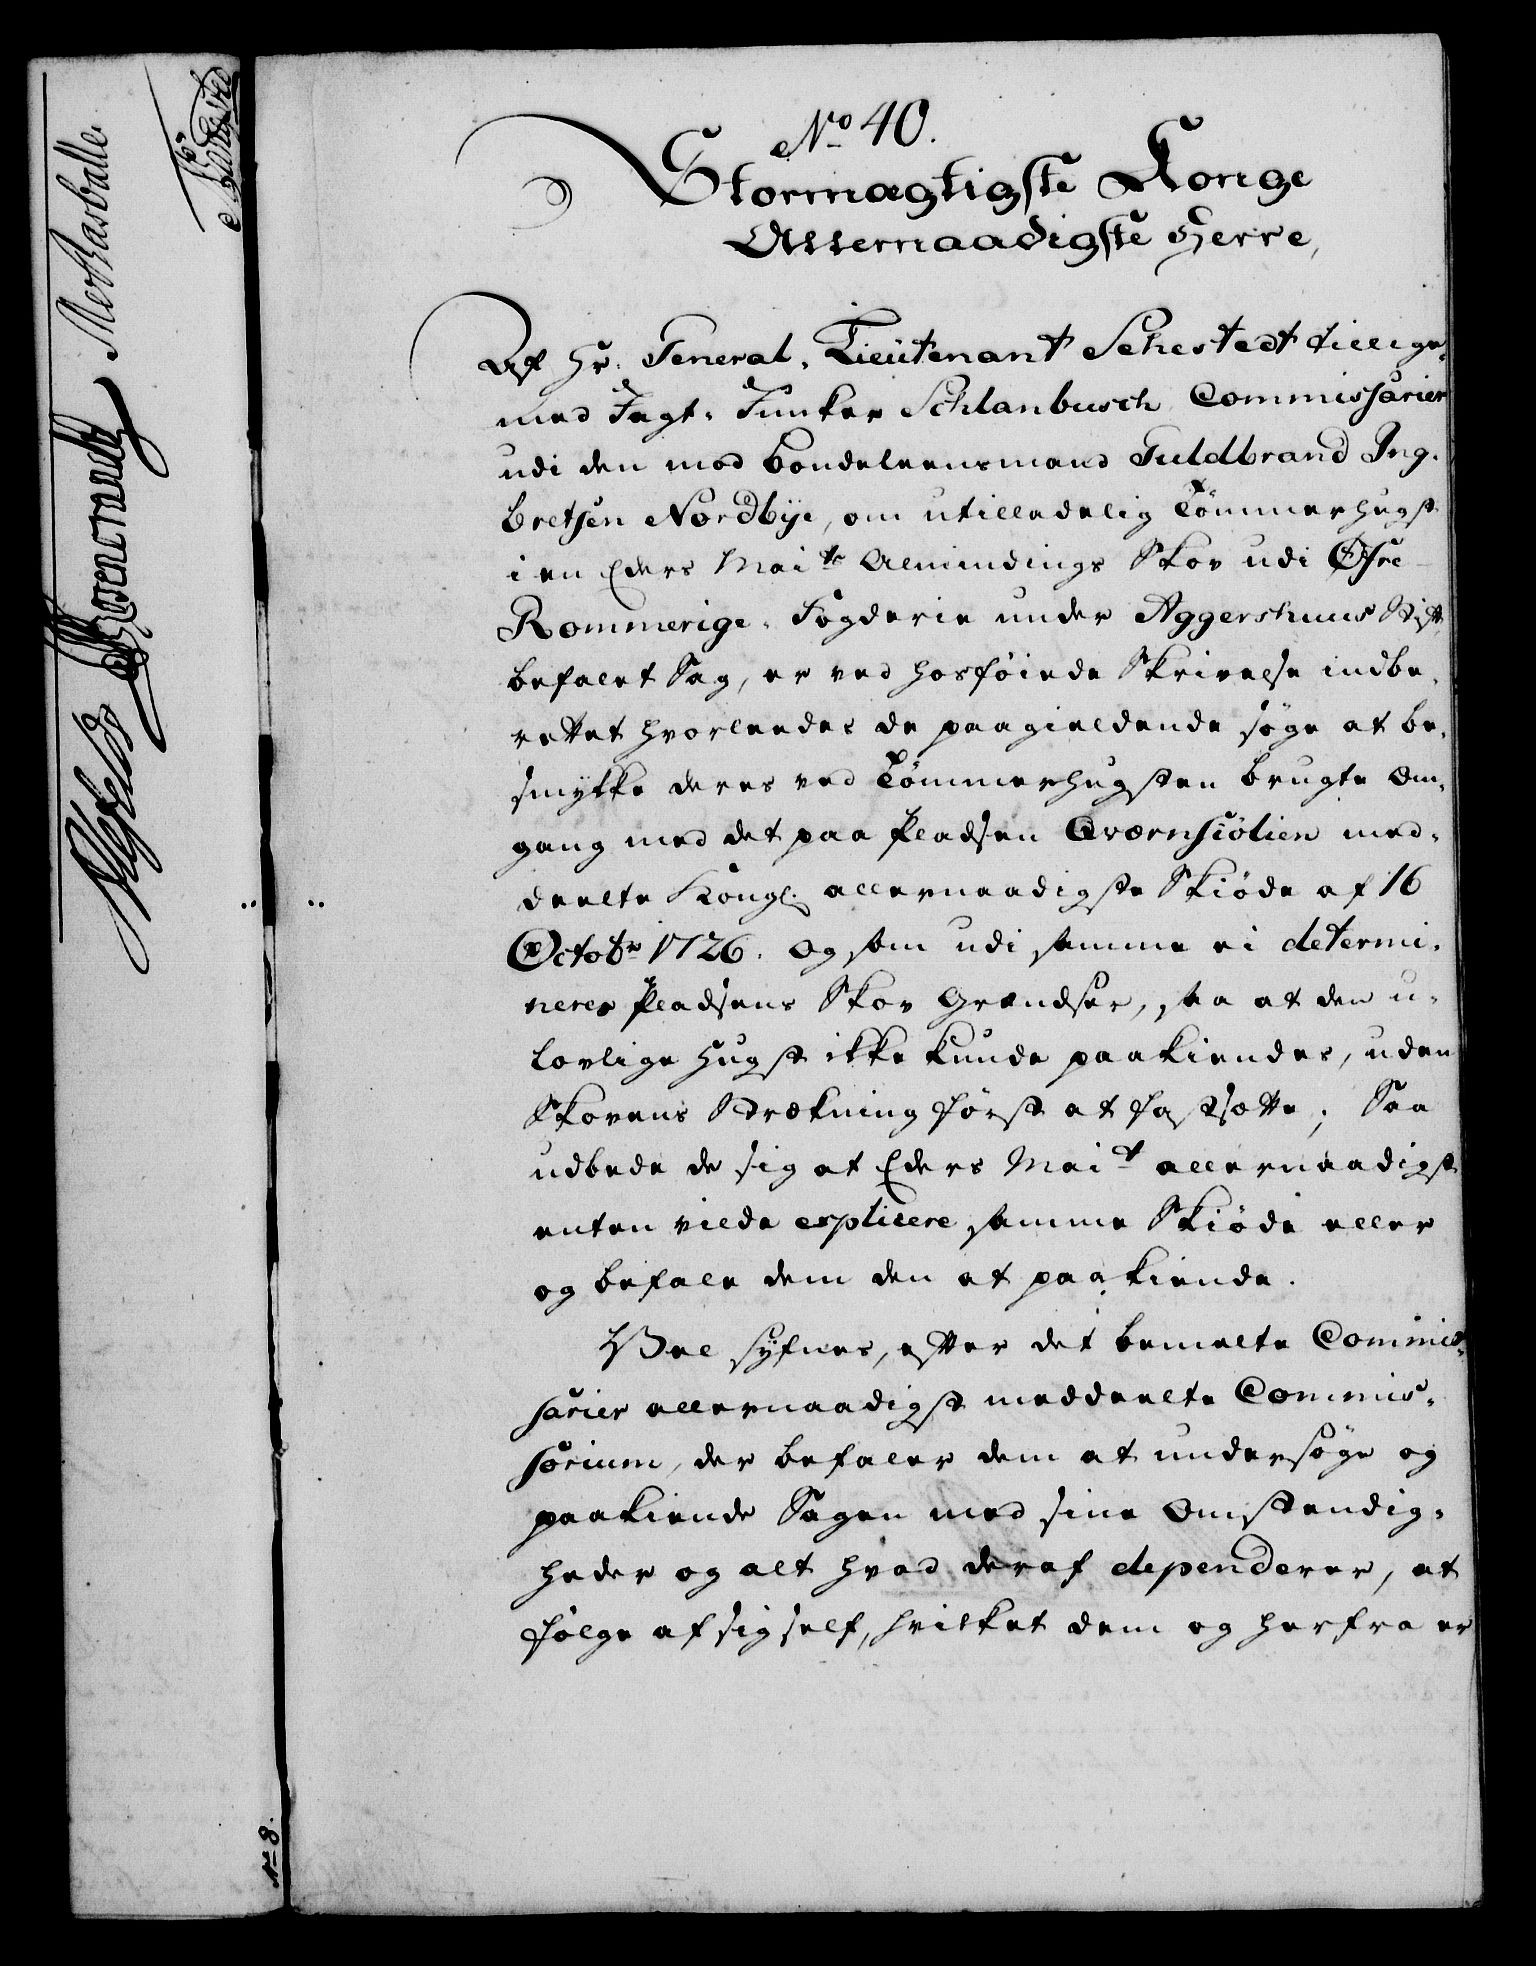 No 40.
Stormægtigste Konge
Allernaadigste Herre,
Af Hr: General-Lieutenant Sehestedt tillige
med Jagt-Junker Schlanbusch Commissarier
udi den mod bondelensmand Guldbrand Ing-
bretsen Nordbÿe, om utilladelig Tömmerhugst
i en Eders Maits Almindings Skov udi Øfre
Rommerige-Fogderie under Aggershuus Stift
befalet Sag, er ved hosföiede Skrivelse indbe-
rettet hvorledes de paagieldende söge at be-
smÿkke deres ved Tömmerhugsten brugte Om-
gang med det paa Pladsen Qværnsiölien med-
deelte Kongl: allernaadigste Skiöde af 16
Octobr 1726. og som udi samme ei determi-
neres Pladsens Skov Grændser, saa at den u-
lovlige Hugst ikke kunde paakiendes, uden
Skovens Strækning först at fastsætte; Saa
udbede de sig at Eders Mait allernaadigst
enten vilde explicere samme Skiöde eller
og befale dem den at paakiende.
Vel sÿfnes, efter det bemelte Commis-
sarier allernaadigst meddeelte Commis-
sorium, der befaler dem at undersöge og
paakiende Sagen med sine Omstendig-
heder og alt hvad deraf dependerer, at
fölge af sig self, hvilket dem og herfra er
No 8.